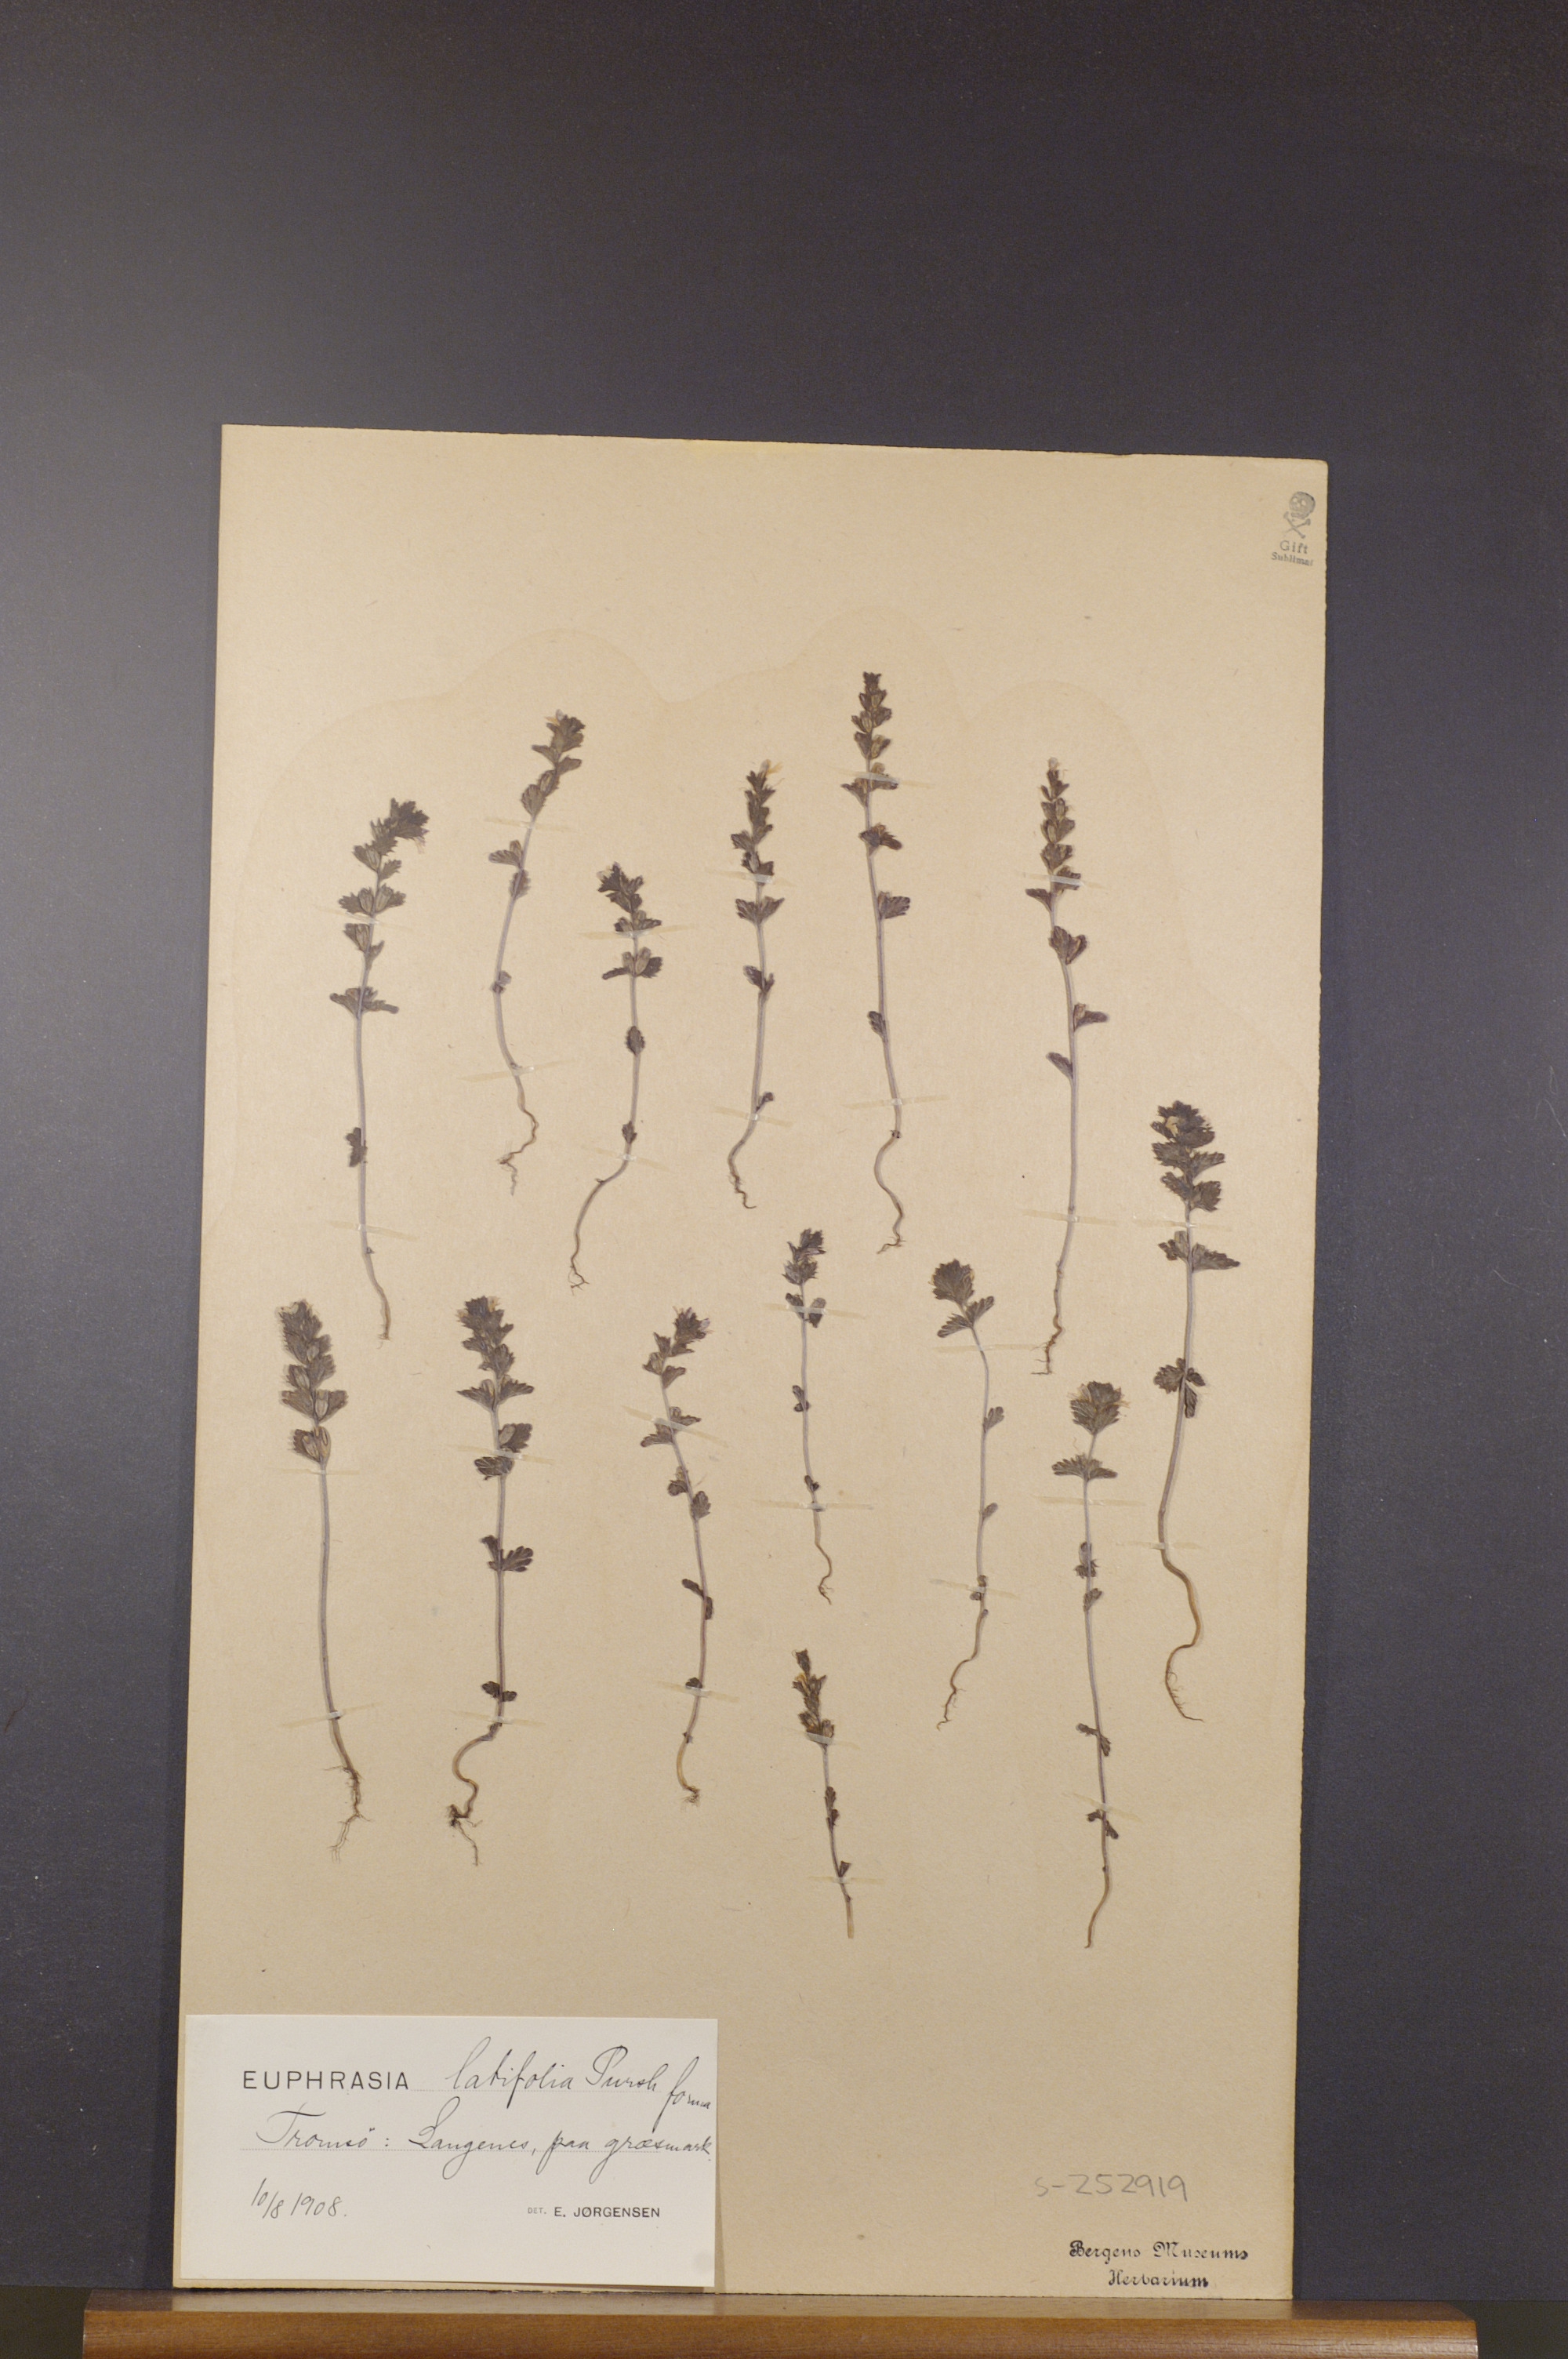 Gift
Sublimat
EUPHRASIA latifolia Pursh forma
Tromsö: Langenes, paa græsmark.
10/8 1908.
DET. E. JØRGENSEN
S-252919
Bergens Museums
Herbarium